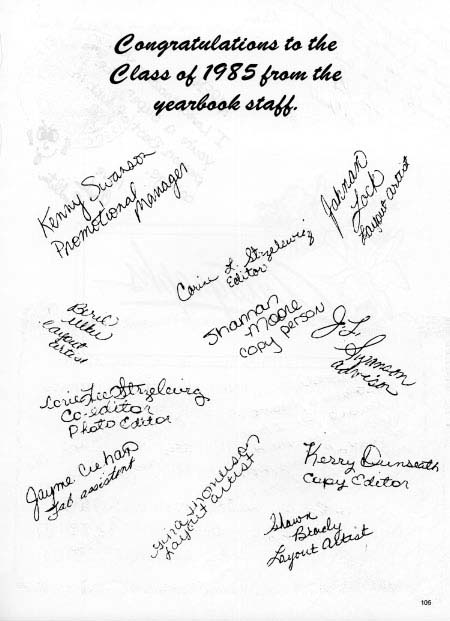 Congratulations to the
Class of 1985 from the
yearbook staff.
Kenny Swanson
Promotional
Manager
Johnan
Lock
Layout Artist
Corine L. Strzelewicz
Editor
Shannan
Moore
copy person
J L
Swanson
advisor
layout
artist
Lorie Lee Strzelewicz
Co-editor
Photo Editor
Jayme
Lab assistant
Gina Thompson
Layout artist
Kerry Dunseath
Copy Editor
Shawn
Brady
Layout Artist
106